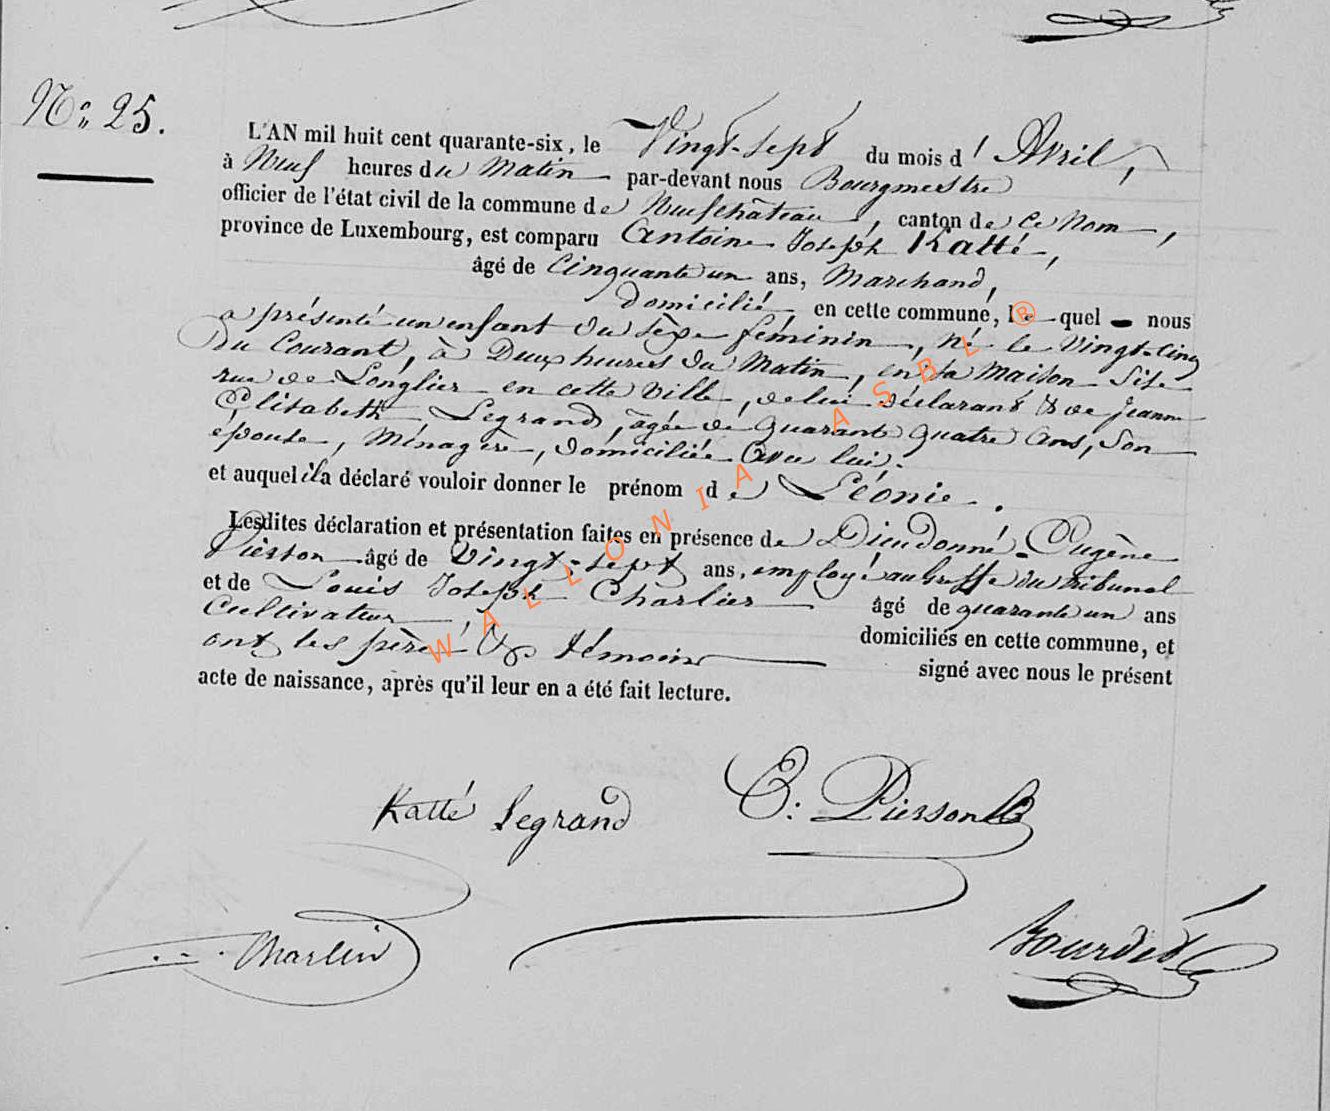 N° 25.
L'AN mil huit cent quarante-six, le Vingt-sept du mois d'Avril,
à Neuf heures du Matin par-devant nous Bourgmestre
officier de l'état civil de la commune de Neufchâteau, canton de ce Nom,
province de Luxembourg, est comparu Antoine Joseph Katté,
âgé de Cinquante un ans, Marchand,
domicilié en cette commune, lequel nous
a présenté un enfant du sèxe féminin, né le Vingt-Cinq
du Courant, à Deux heures du Matin, en sa Maison Sise
rue de Longlier en cette Ville, de lui déclarant & de Jeanne
Elisabeth Legrand, âgée de Quarante quatre ans, Son
épouse, Ménagère, domiciliée avec lui.
et auquel il a déclaré vouloir donner le prénom de Léonie.
Lesdites déclaration et présentation faites en présence de Dieudonné Eugène
Pierson âgé de Vingt-sept ans, employé au Greffe du tribunal
et de Louis Joseph Charlier âgé de quarante un ans
Cultivateur, domiciliés en cette commune, et
ont les père & témoins signé avec nous le présent
acte de naissance, après qu'il leur en a été fait lecture.
Katté Legrand E. Pierson
Bourdet
WALLONIA ASBL ®